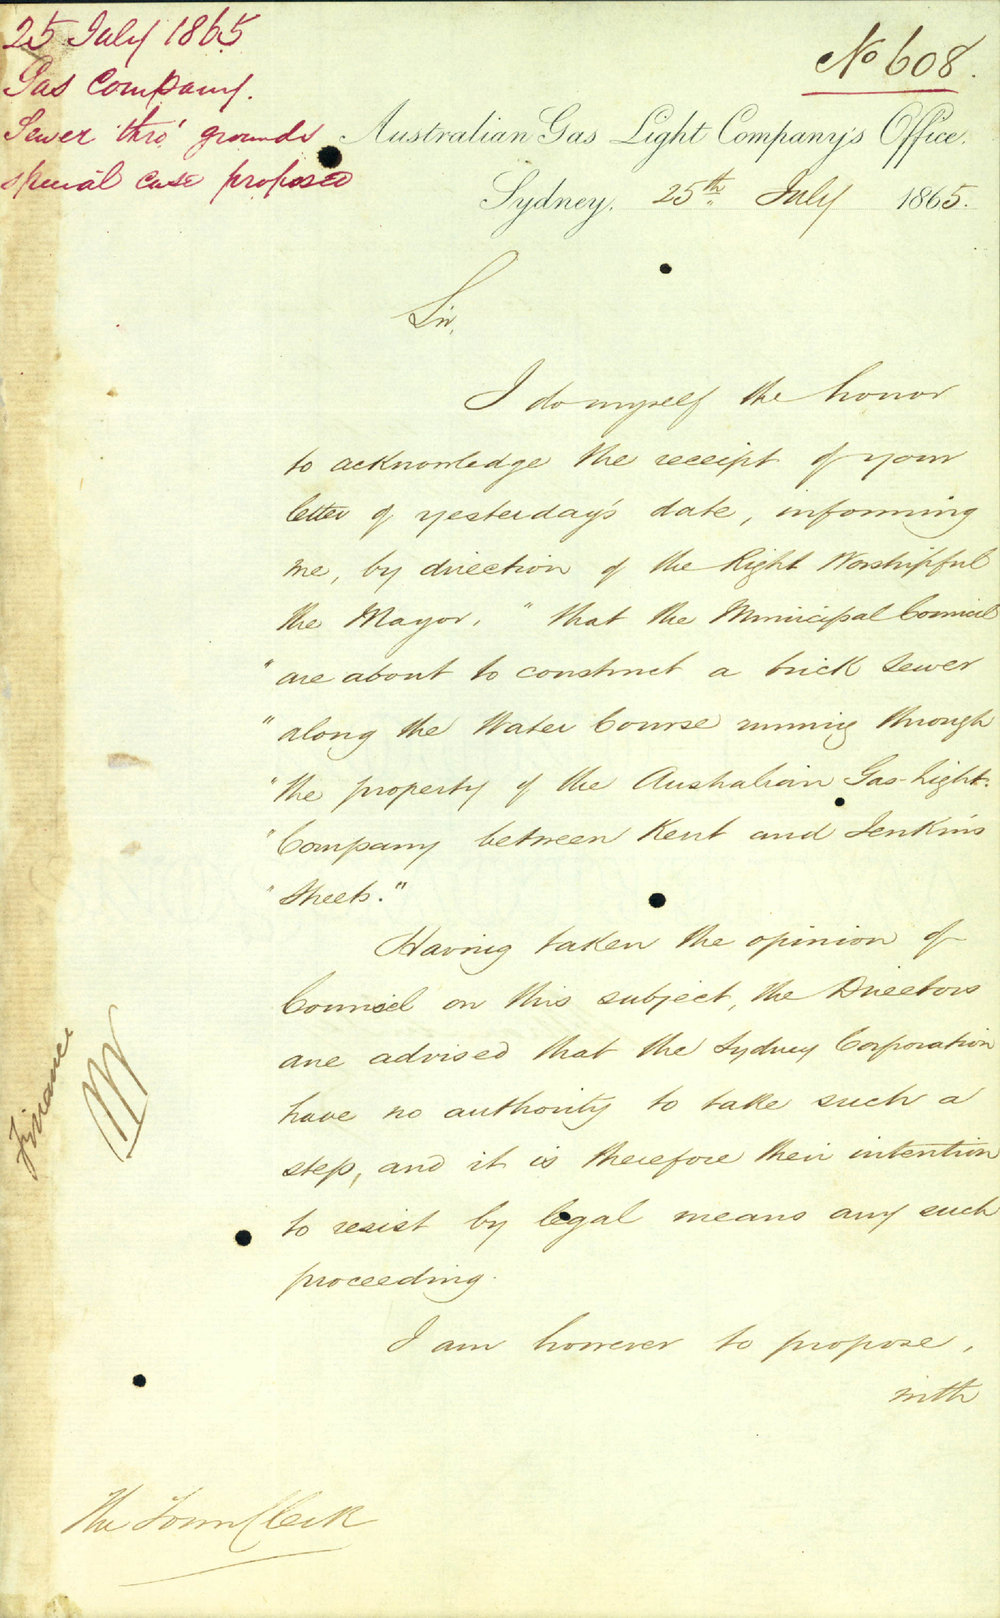 25 July 1865
Gas Company.
Sewer thro' grounds
special case proposed
No 608.
Australian Gas Light Company's Office.
Sydney, 25th July 1865.
Sir,
I do myself the honor
to acknowledge the receipt of your
letter of yesterday's date, informing
me, by direction of the Right Worshipful
the Mayor, "that the Municipal Council
"are about to construct a brick sewer
"along the Water Course running through
"the property of the Australian Gas-Light.
"Company between Kent and Jenkins
"Streets."
Having taken the opinion of
Counsel on this subject, the Directors
are advised that the Sydney Corporation
have no authority to take such a
step, and it is therefore their intention
to resist by legal means any such
proceeding.
I am however to propose,
with
The Town Clerk
Finance